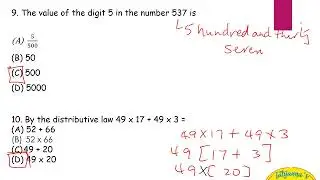 9. The value of the digit 5 in the number 537 is
(A) 5/500
(B) 50
(C) 500
(D) 5000
5 hundred and thirty
seven
10. By the distributive law 49 x 17 + 49 x 3 =
(A) 52 + 66
(B) 52 x 66
(C) 49 + 20
(D) 49 x 20
49 x 17 + 49 x 3
49 [ 17 + 3 ]
49 x [ 20 ]